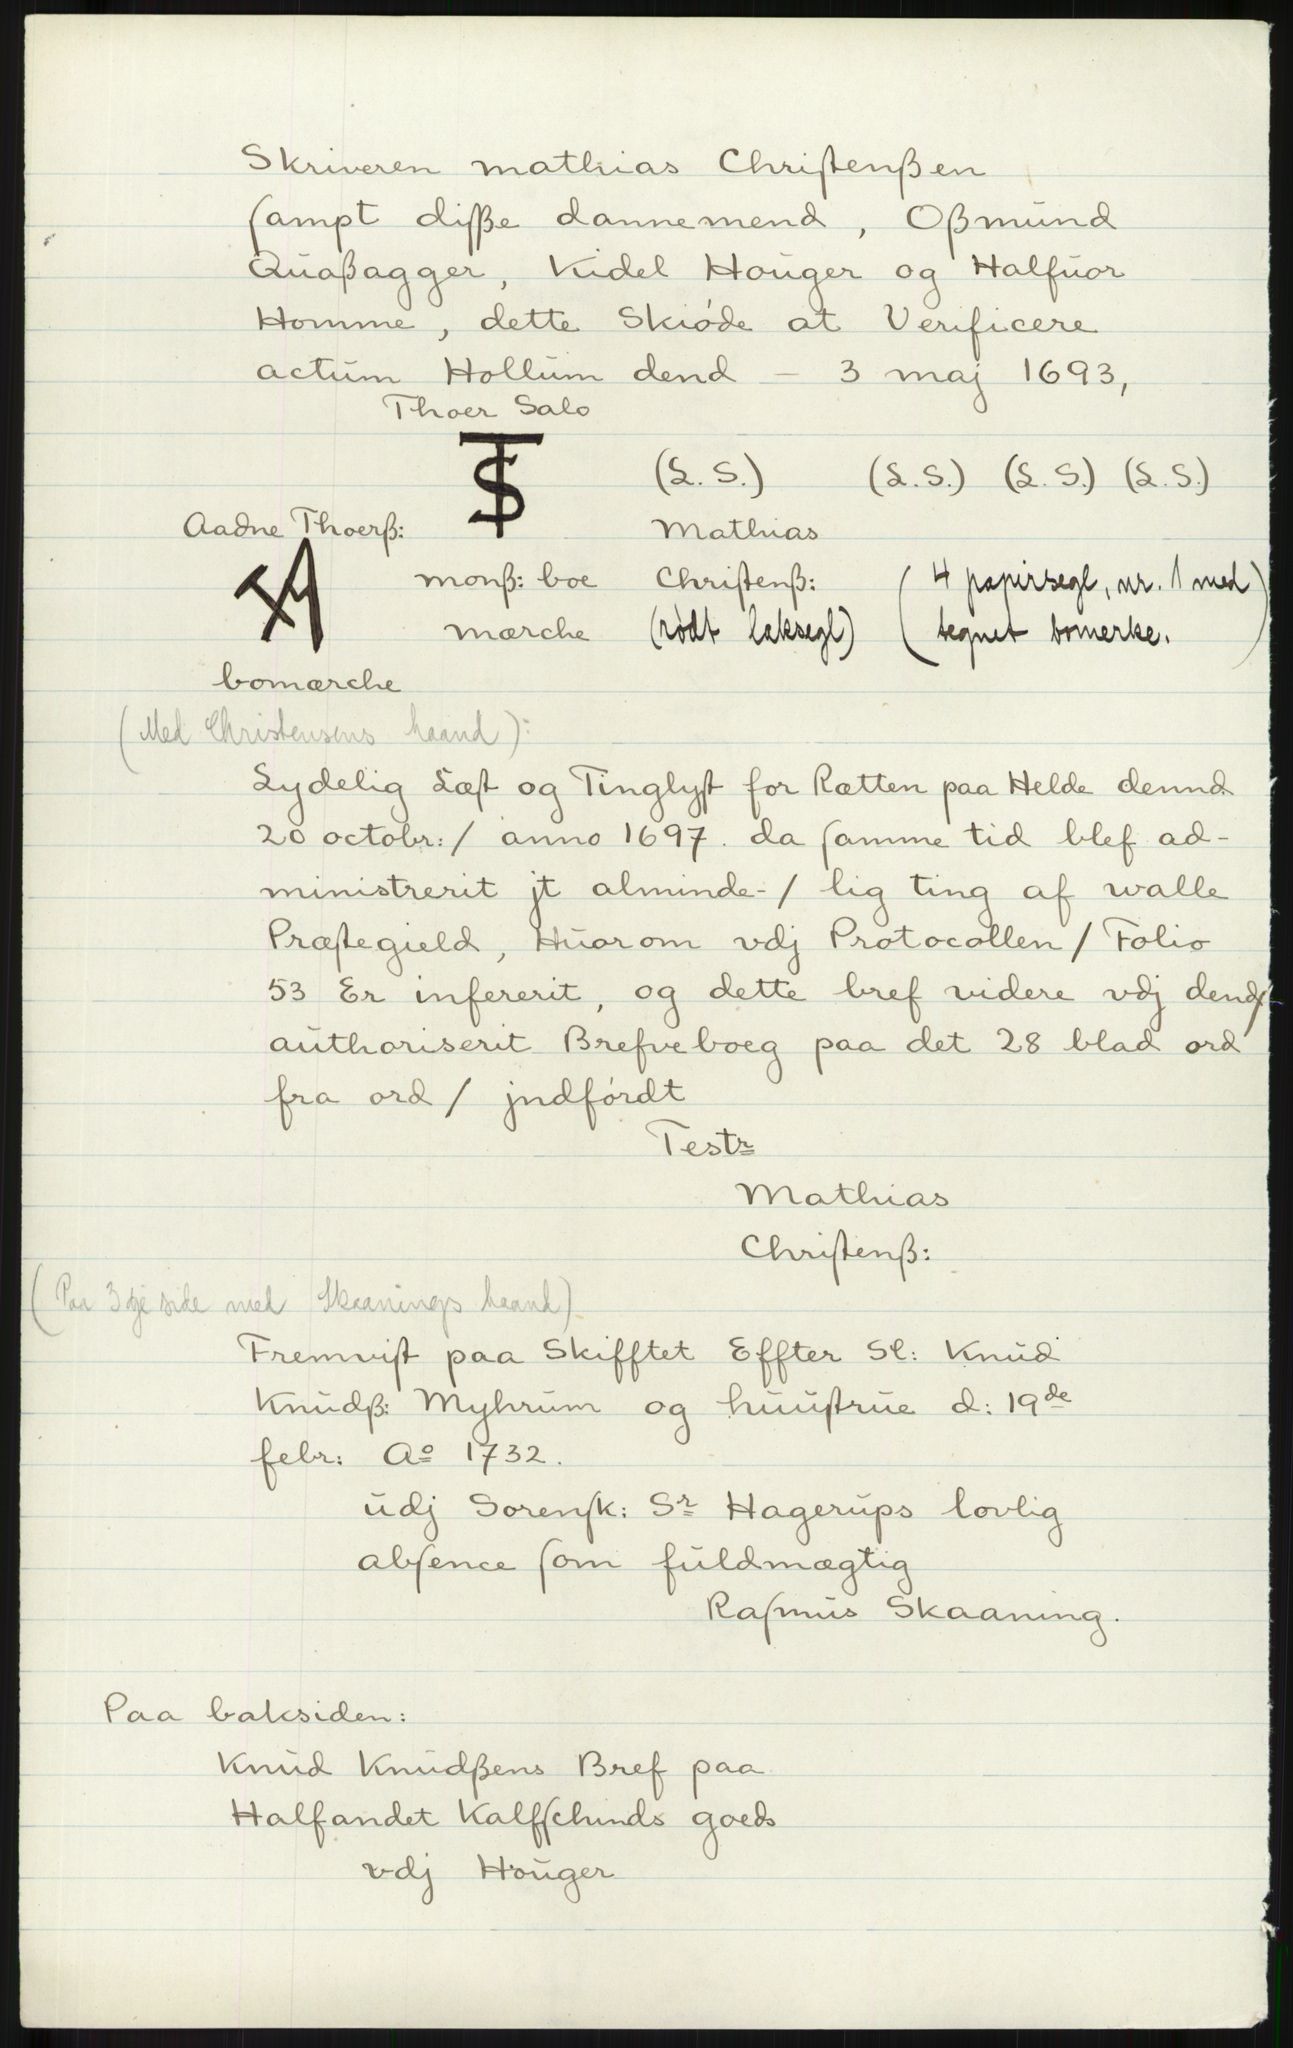 Skriveren mathias Chriſtenßen
ſampt diſße dannemend, Oßmund
Quaßagger, Kidel Houger og Halfuor
Homme, dette Skiøde at Verificere
actum Hollum dend – 3 maj 1693,
Thoer Salo
(L. S.) (L. S.) (L. S.) (L. S.)
Aadne Thoerß: Mathias
monß: boe Chriſtenß: (4 papirsegl, nr. 1 med
mærche (rødt laksegl) tegnet bomerke.)
bomærche
(Med Christensens haand):
Lydelig Læſt og Tinglyſt for Rætten paa Helde dennd
20 octobr: / anno 1697. da ſamme tid blef ad-
ministrerit jt alminde- / lig ting af walle
Præſtegield, Huorom vdj Protocollen / Folio
53 Er inſererit, og dette bref videre vdj dend /
authoriserit Brefveboeg paa det 28 blad ord
fra ord / jndfórdt
Testr
Mathias
Chriſtenß:
(Paa 3dje side med Skaanings haand)
Fremviſt paa Skifftet Effter Sl: Knud
Knudß: Myhrum og huuſtrue d: 19de
febr: Ao 1732.
udj Sorenſk: Sr Hagerups lovlig
abſence ſom fuldmægtig
Raſmus Skaaning.
Paa baksiden:
Knud Knudßens Bref paa
Halfandet Kalfſchinds goeds
vdj Houger